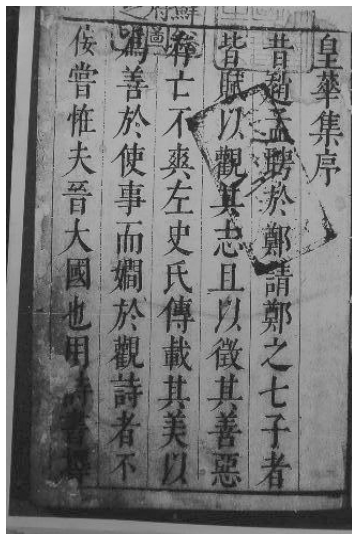 皇華集序
昔趙孟聘於鄭請鄭之七子者
皆賦以觀其志且以徵其善惡
存亡不爽左史氏傳載其美以
爲善於使事而嫺於觀詩者不
佞嘗惟夫晉大國也用詩書